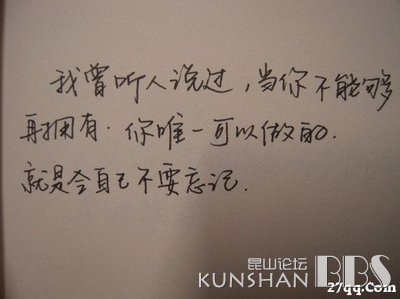 我曾听人说过，当你不能够
再拥有．你唯一可以做的．
就是令自己不要忘记．
昆山论坛
KUNSHAN BBS
27qq.Com